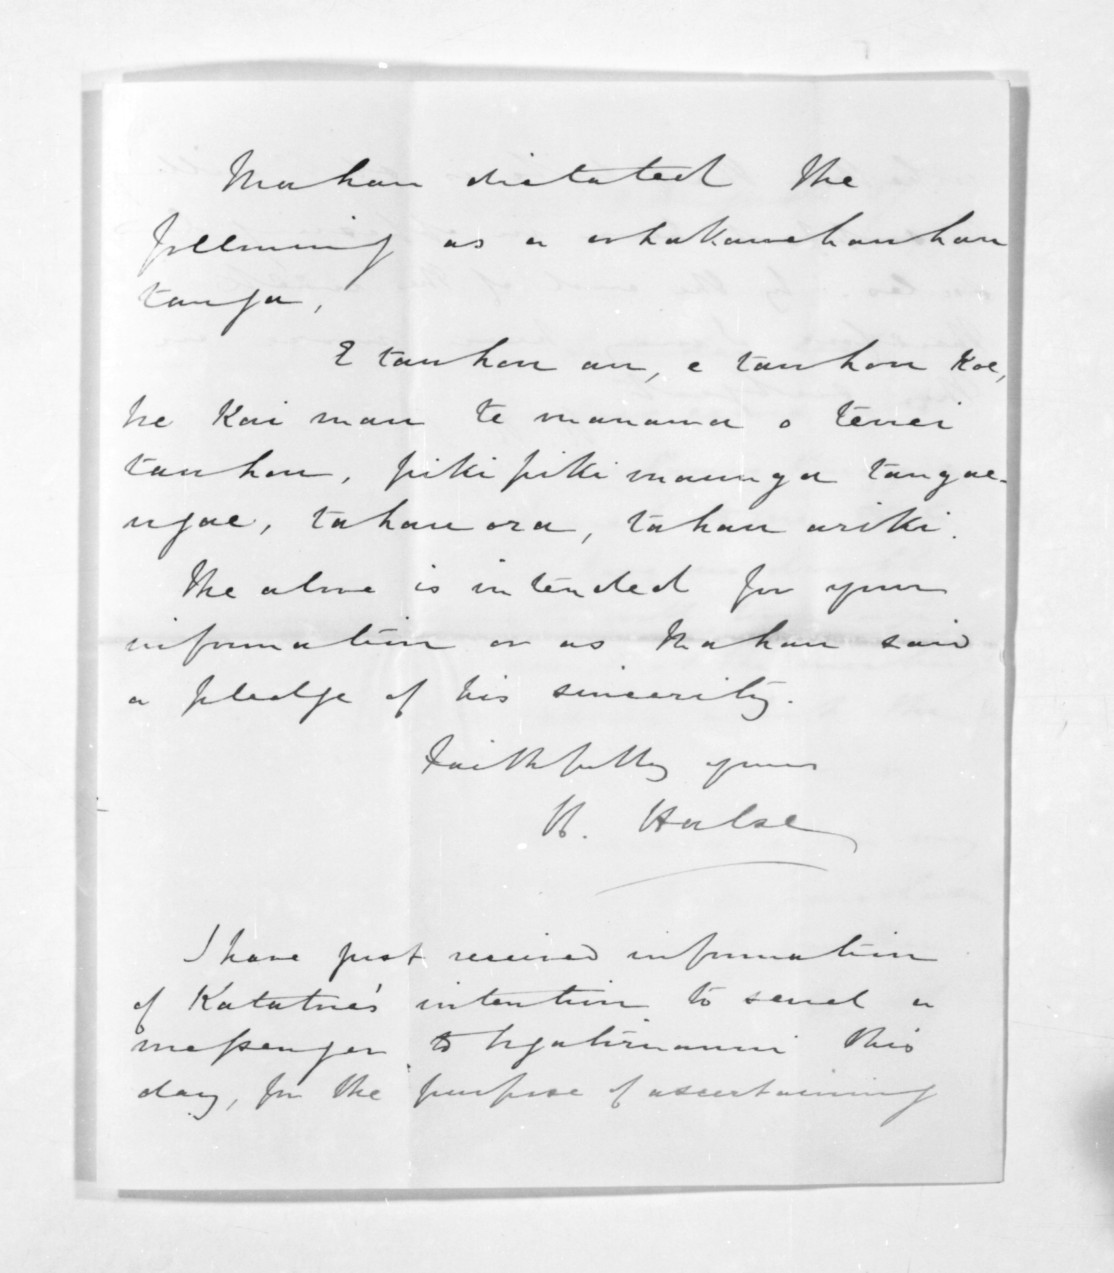 Mahau dictated the
following as a whakawhauhau
tanga,
E tauhou au, e tauhou Koe,
he Kai mau te manawa o tenei
tauhou, pikipiki maunga tangae-
ngae, tahau ora, tahau ariki.
The above is intended for your
information or as Mahau said
a pledge of his sincerity.
Faithfully yours
H. Halse
I have just received information
of Katatore's intention to send a
messenger to Ngatiruanui this
day, for the purpose of ascertaining